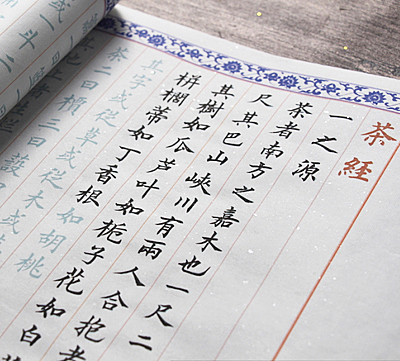 茶經
一之源
茶者南方之嘉木也一尺二
尺其巴山峽川有兩人合抱者
其樹如瓜芦叶如栀子花如白
栟榈蒂如丁香根
其字或從草或從如胡桃
茶二曰檟三曰蔎